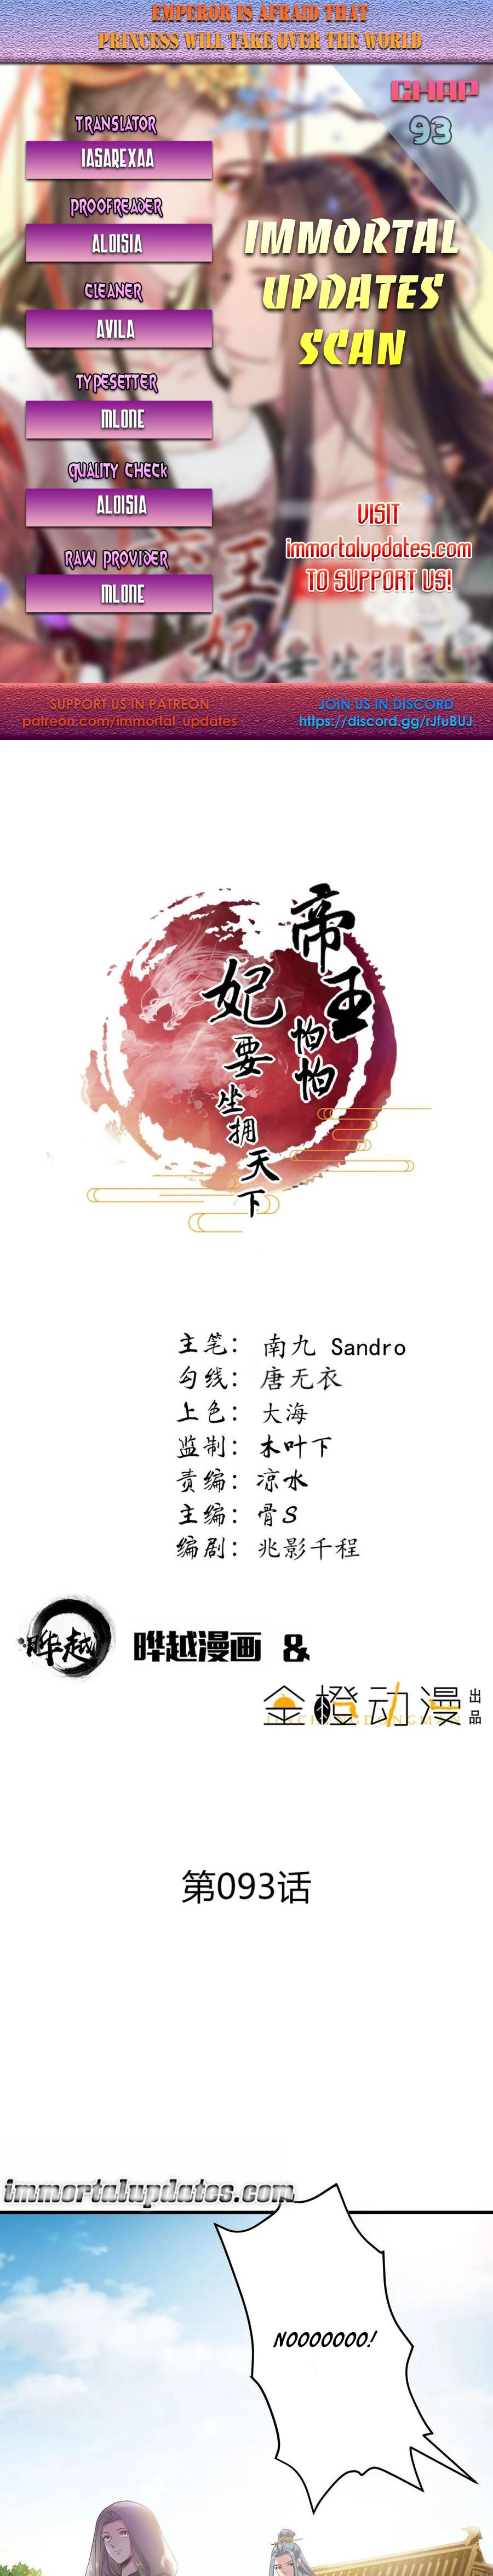 EMPEROR IS AFRAID THAT
PRINCESS WILL TAKE OVER THE WORLD
CHAP
93
TRANSLATOR
IASAREXAA
PROOFREADER
ALOISIA
CLEANER
AVILA
TYPESETTER
MLONE
QUALITY CHECK
ALOISIA
RAW PROVIDER
MLONE
IMMORTAL
UPDATES
SCAN
VISIT
immortalupdates.com
TO SUPPORT US!
SUPPORT US IN PATREON
patreon.com/immortal_updates
JOIN US IN DISCORD
https://discord.gg/rJfuBUJ
帝王怕怕
妃要坐拥天下
主笔: 南九 Sandro
勾线: 唐无衣
上色: 大海
监制: 木叶下
责编: 凉水
主编: 骨S
编剧: 兆影千程
晔越
晔越漫画 &
金橙动漫 出品
第093话
immortalupdates.com
NOOOOOOO!